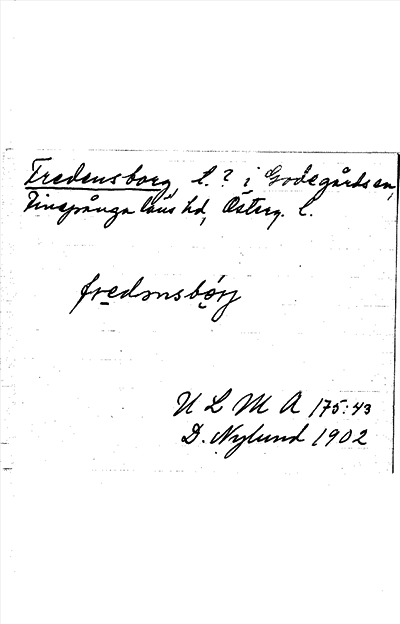 Fredensborg, l. ? i Godegårds sn,
Finspånga läns hd, Österg. l.
fredənsbórj
U L M A 175:43
D. Nylund 1902